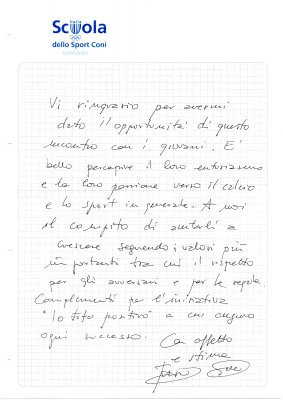 Italia
Scuola
dello Sport Coni
Vi ringrazio per avermi
dato il opportunità di questo
incontro con i giovani. E'
bello percepire il loro entusiasmo
e la loro passione verso il calcio
e lo sport in generale. A noi
il compito di aiutarli a
crescere seguendo i valori più
importanti tra cui il rispetto
per gli avversari e per le regole
Complimenti per l'iniziativa
"Io tifo positivo" a cui auguro
ogni successo.
Con affetto
e stima